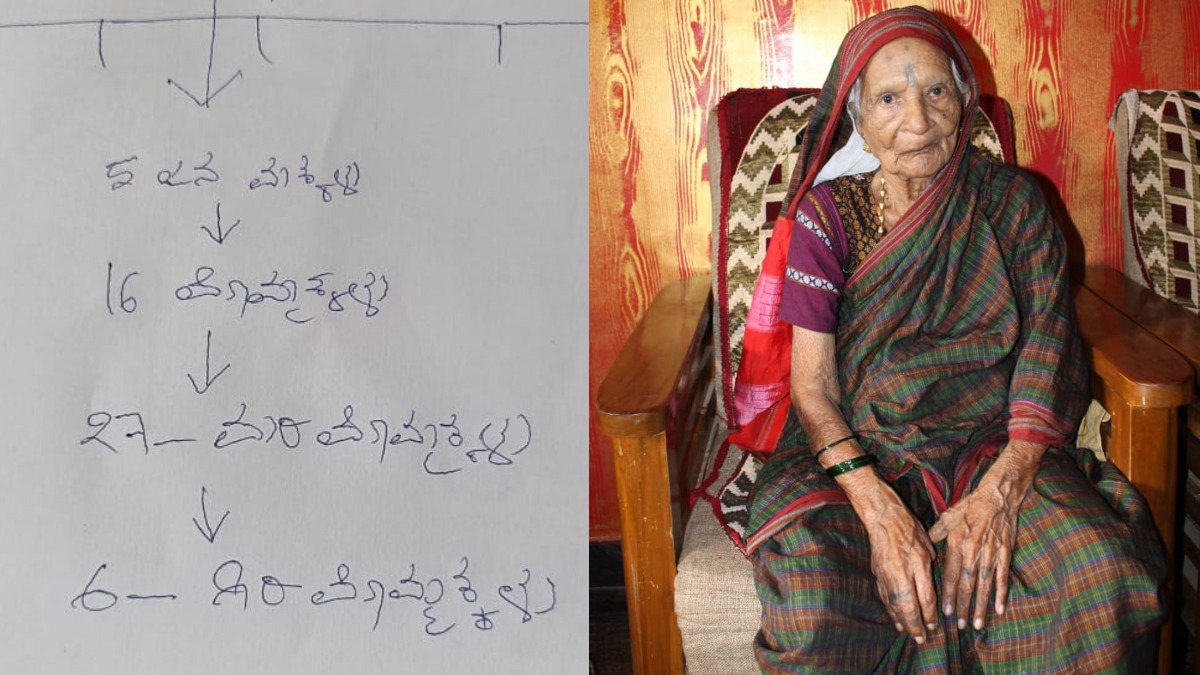 5 ಜನ ಮಕ್ಕಳು
16 ಮೊಮ್ಮಕ್ಕಳು
27 – ಮರಿ ಮೊಮ್ಮಕ್ಕಳು
6 – ಗಿರಿ ಮೊಮ್ಮಕ್ಕಳು